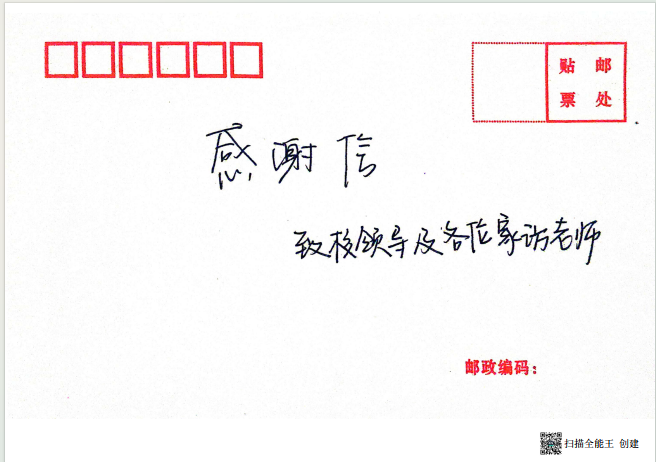 贴 邮
票 处
感谢信
致校领导及各位家访老师
邮政编码：
扫描全能王 创建